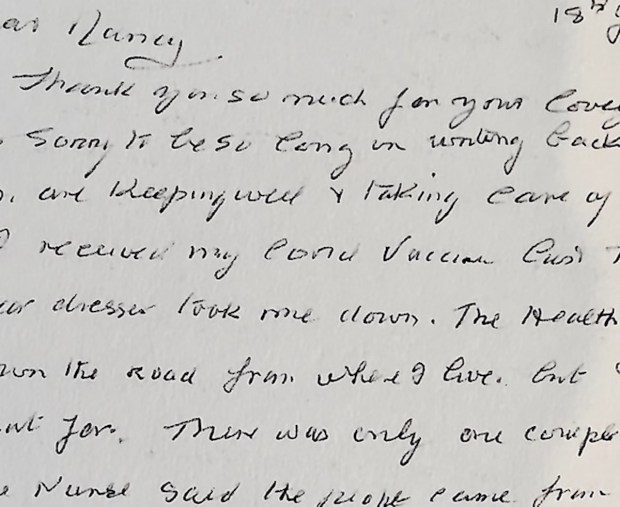 18th
Nancy
Thank you so much for your
Sorry to be so long in writing back
are keeping well & taking care of
I received my Covid Vaccine last
dresser took me down. The Health
the road from where I live. but
for. There was only one
Nurse said the people came from